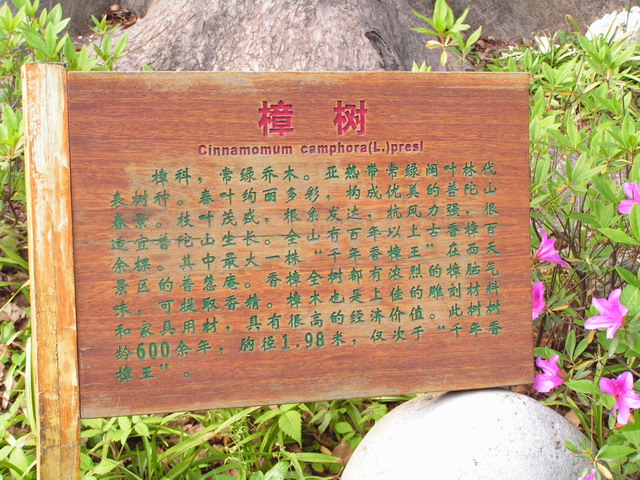 樟 树
Cinnamomum camphora(L.)presl
樟科，常绿乔木。亚热带常绿阔叶林代
表树种。春叶绚丽多彩，构成优美的普陀山
春景。枝叶茂盛，根系发达，抗风力强，很
适宜普陀山生长。全山有百年以上古香樟百
余棵。其中最大一株“千年香樟王”在西天
景区的普慈庵。香樟全树都有浓烈的樟脑气
味，可提取香精。樟木也是上佳的雕刻材料
和家具用材，具有很高的经济价值。此树树
龄600余年，胸径1.98米，仅次于“千年香
樟王”。